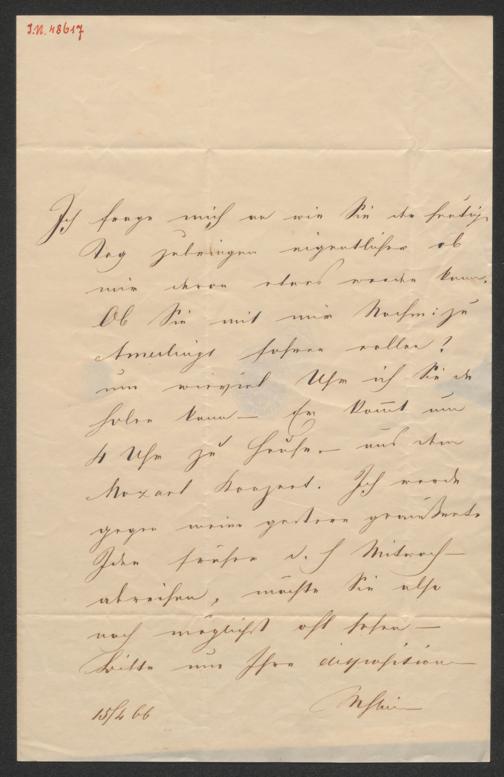 I.N. 48617
Ich frage mich an wie Sie den heutig.
Tag zubringen eigentlicher ob
mir davon etwas werden kann.
Ob Sie mit mir Nachm: zu
Amerlings fahren wollen?
um wieviel Uhr ich Sie da
holen kann — Er kommt um
4 Uhr zu Hause — aus dem
Mozart Konzert. Ich werde
gegen meine gestern geäußerte
Idee früher d. h Mitwoch —
abreisen, möchte Sie also
noch möglichst oft sehen —
Bitte um Ihre disposition —
15/4 66